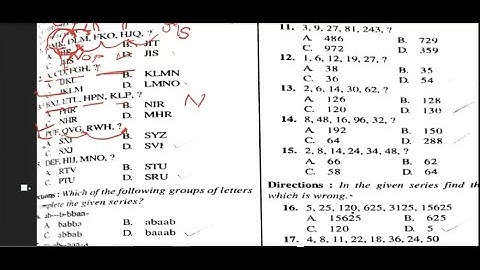 BMK, DLM, FKO, HJQ, ?
B. JIT
C. JHS D. JIS
A, CD, FGH, ?
A. IJKL B. KLMN
C. JKLM D. LMNO
BXJ, ETL, HPN, KLP, ?
B. NIR
C. NHR D. MHR
PUF, QVG, RWH, ?
A. SXI B. SYZ
C. SXJ D. SVI
DEF, HIJ, MNO, ?
A. RTV B. STU
C. PTU D. SRU
Which of the following groups of letters
complete the given series?
ab—b-bbaa-
A. babba B. abaab
C. abbab D. baaab
11. 3, 9, 27, 81, 243, ?
A. 486 B. 729
C. 972 D. 359
12. 1, 6, 12, 19, 27, ?
A. 38 B. 35
C. 36 D. 54
13. 2, 6, 14, 30, 62, ?
A. 126 B. 128
C. 120 D. 130
14. 8, 48, 16, 96, 32, ?
A. 192 B. 150
C. 64 D. 288
15. 2, 8, 14, 24, 34, 48, ?
A. 66 B. 62
C. 58 D. 64
Directions : In the given series find th
which is wrong."
16. 5, 25, 120, 625, 3125, 15625
A. 15625 B. 625
C. 120 D. 5
17. 4, 8, 11, 22, 18, 36, 24, 50